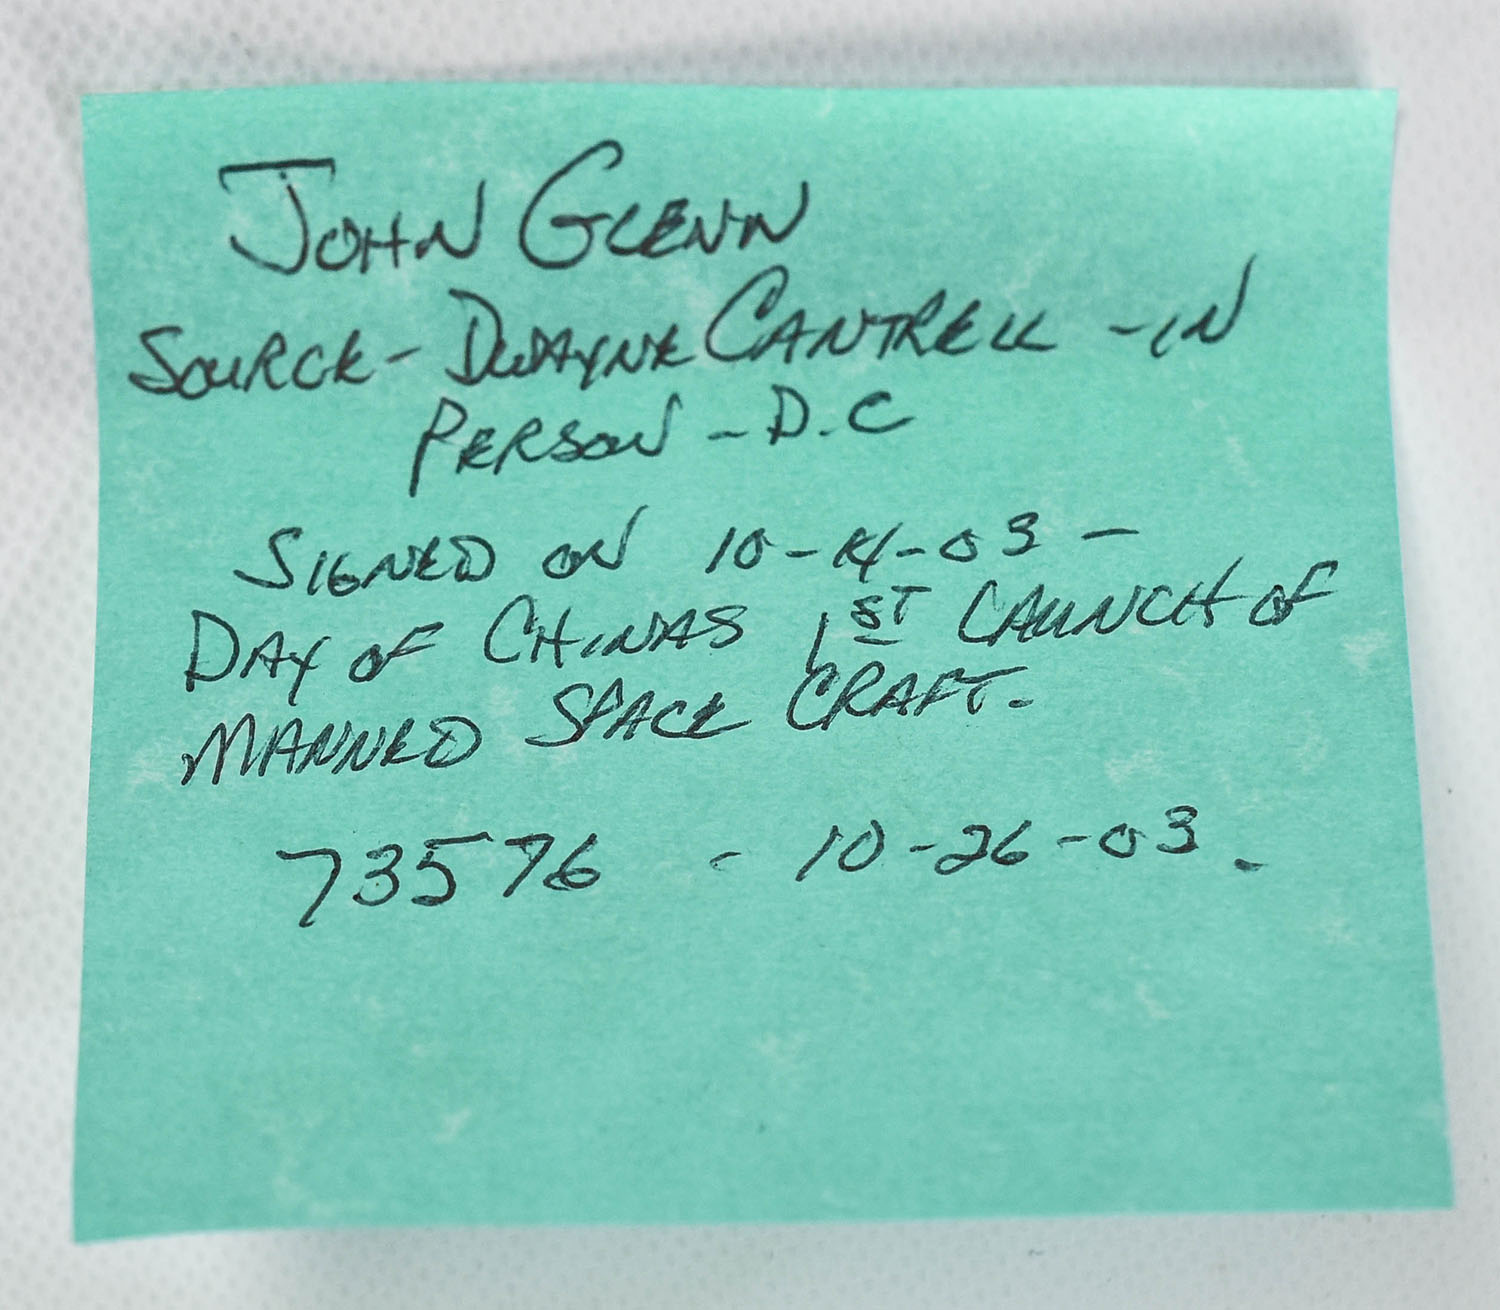 JOHN GLENN
SOURCE - DWAYNE CANTRELL - IN
PERSON - D.C
SIGNED ON 10-14-03 -
DAY OF CHINAS 1ST LAUNCH OF
MANNED SPACE CRAFT.
73576 - 10-26-03.